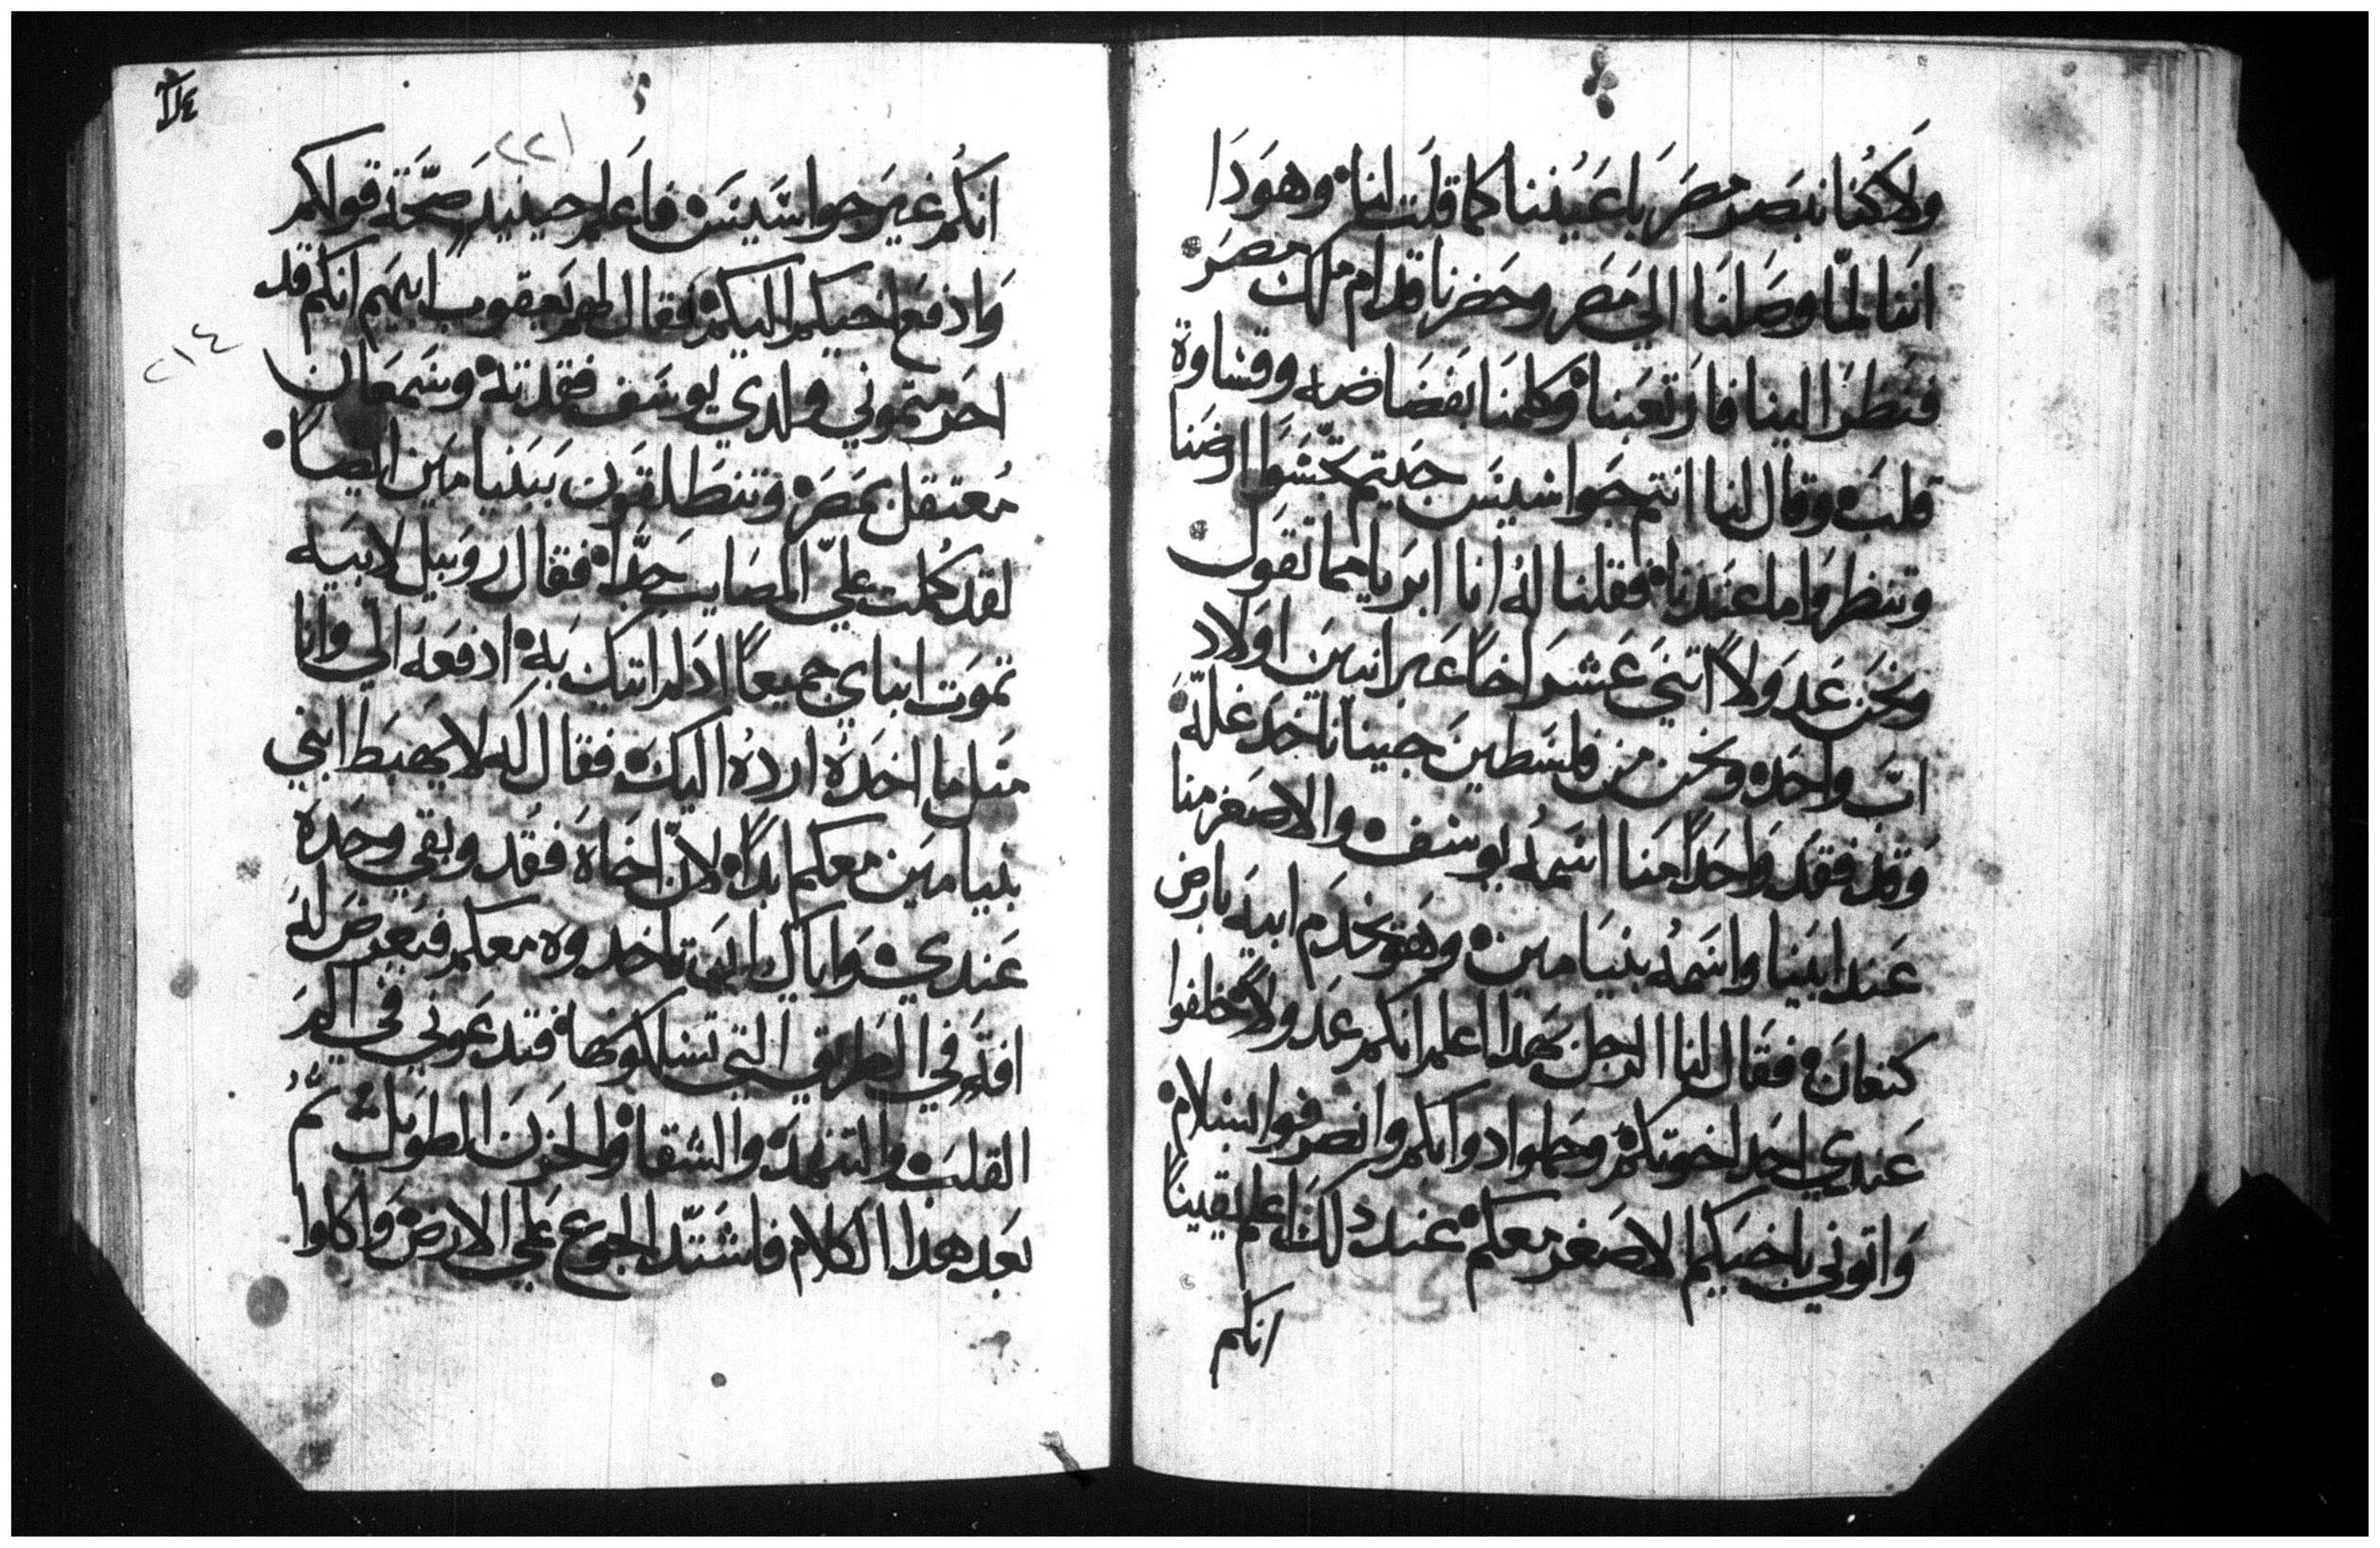 ولا كنا نبصر مصر باعيننا كما قلت لنا وهودا
اننا لما وصلنا الي مصر وحضرنا قدام ملك مصر
فنطر الينا فارتعبنا وكلمنا بفضاضه وقساوة
قلب وقال لنا انتم جواسيس جيتم تجسوا ارضنا
وتنظروا ما عندنا فقلنا له انا ابريا مما تقول
ونحن عدولا اتني عشر اخا عبرانيين اولاد
اب واحد ونحن من فلسطين جينا ناخد غله
وقد فقد واحدا منا اسمه يوسف والاصغر منا
عند ابينا واسمه بنيامين وهو يخدم ابيه بارض
كنعان فقال لنا الرجل بهدا اعلم انكم عدولا خلفوا
عندي احد اخوتكم وحملوا دوابكم وانصرفوا بسلام
واتوني باخيكم الاصغر معكم عند دلك اعلم يقينا
انكم
II٤
٢٢١
انكم غير جواسيس فاعلم حينيد صحة قولكم
وادفع اخيكم اليكم فقال لهم يعقوب ابيهم انكم قد
٢١٤
احرمتموني ولدي يوسف فقدته وسمعان
معتقل بمصر وتنطلقون ببنيامين ايصا
لقد كملت علي المصايب جدا فقال روبيل لابيه
تموت ابناي جميعا ادا لم اتيك به ادفعه الي وانا
متل ما اخده ارده اليك فقال له لا يهبط ابني
بنيامين معكم ابدا لان اخاه فقد وبقي وحده
عندي واياك ان تاخدوه معكم فيعرض له
افة في الطريق التي تسلكونها فتدعوني في الم
القلب والتنهد والشقا والحزن الطويل تم
بعد هدا الكلام فاشتد الجوع علي الارض واكلوا